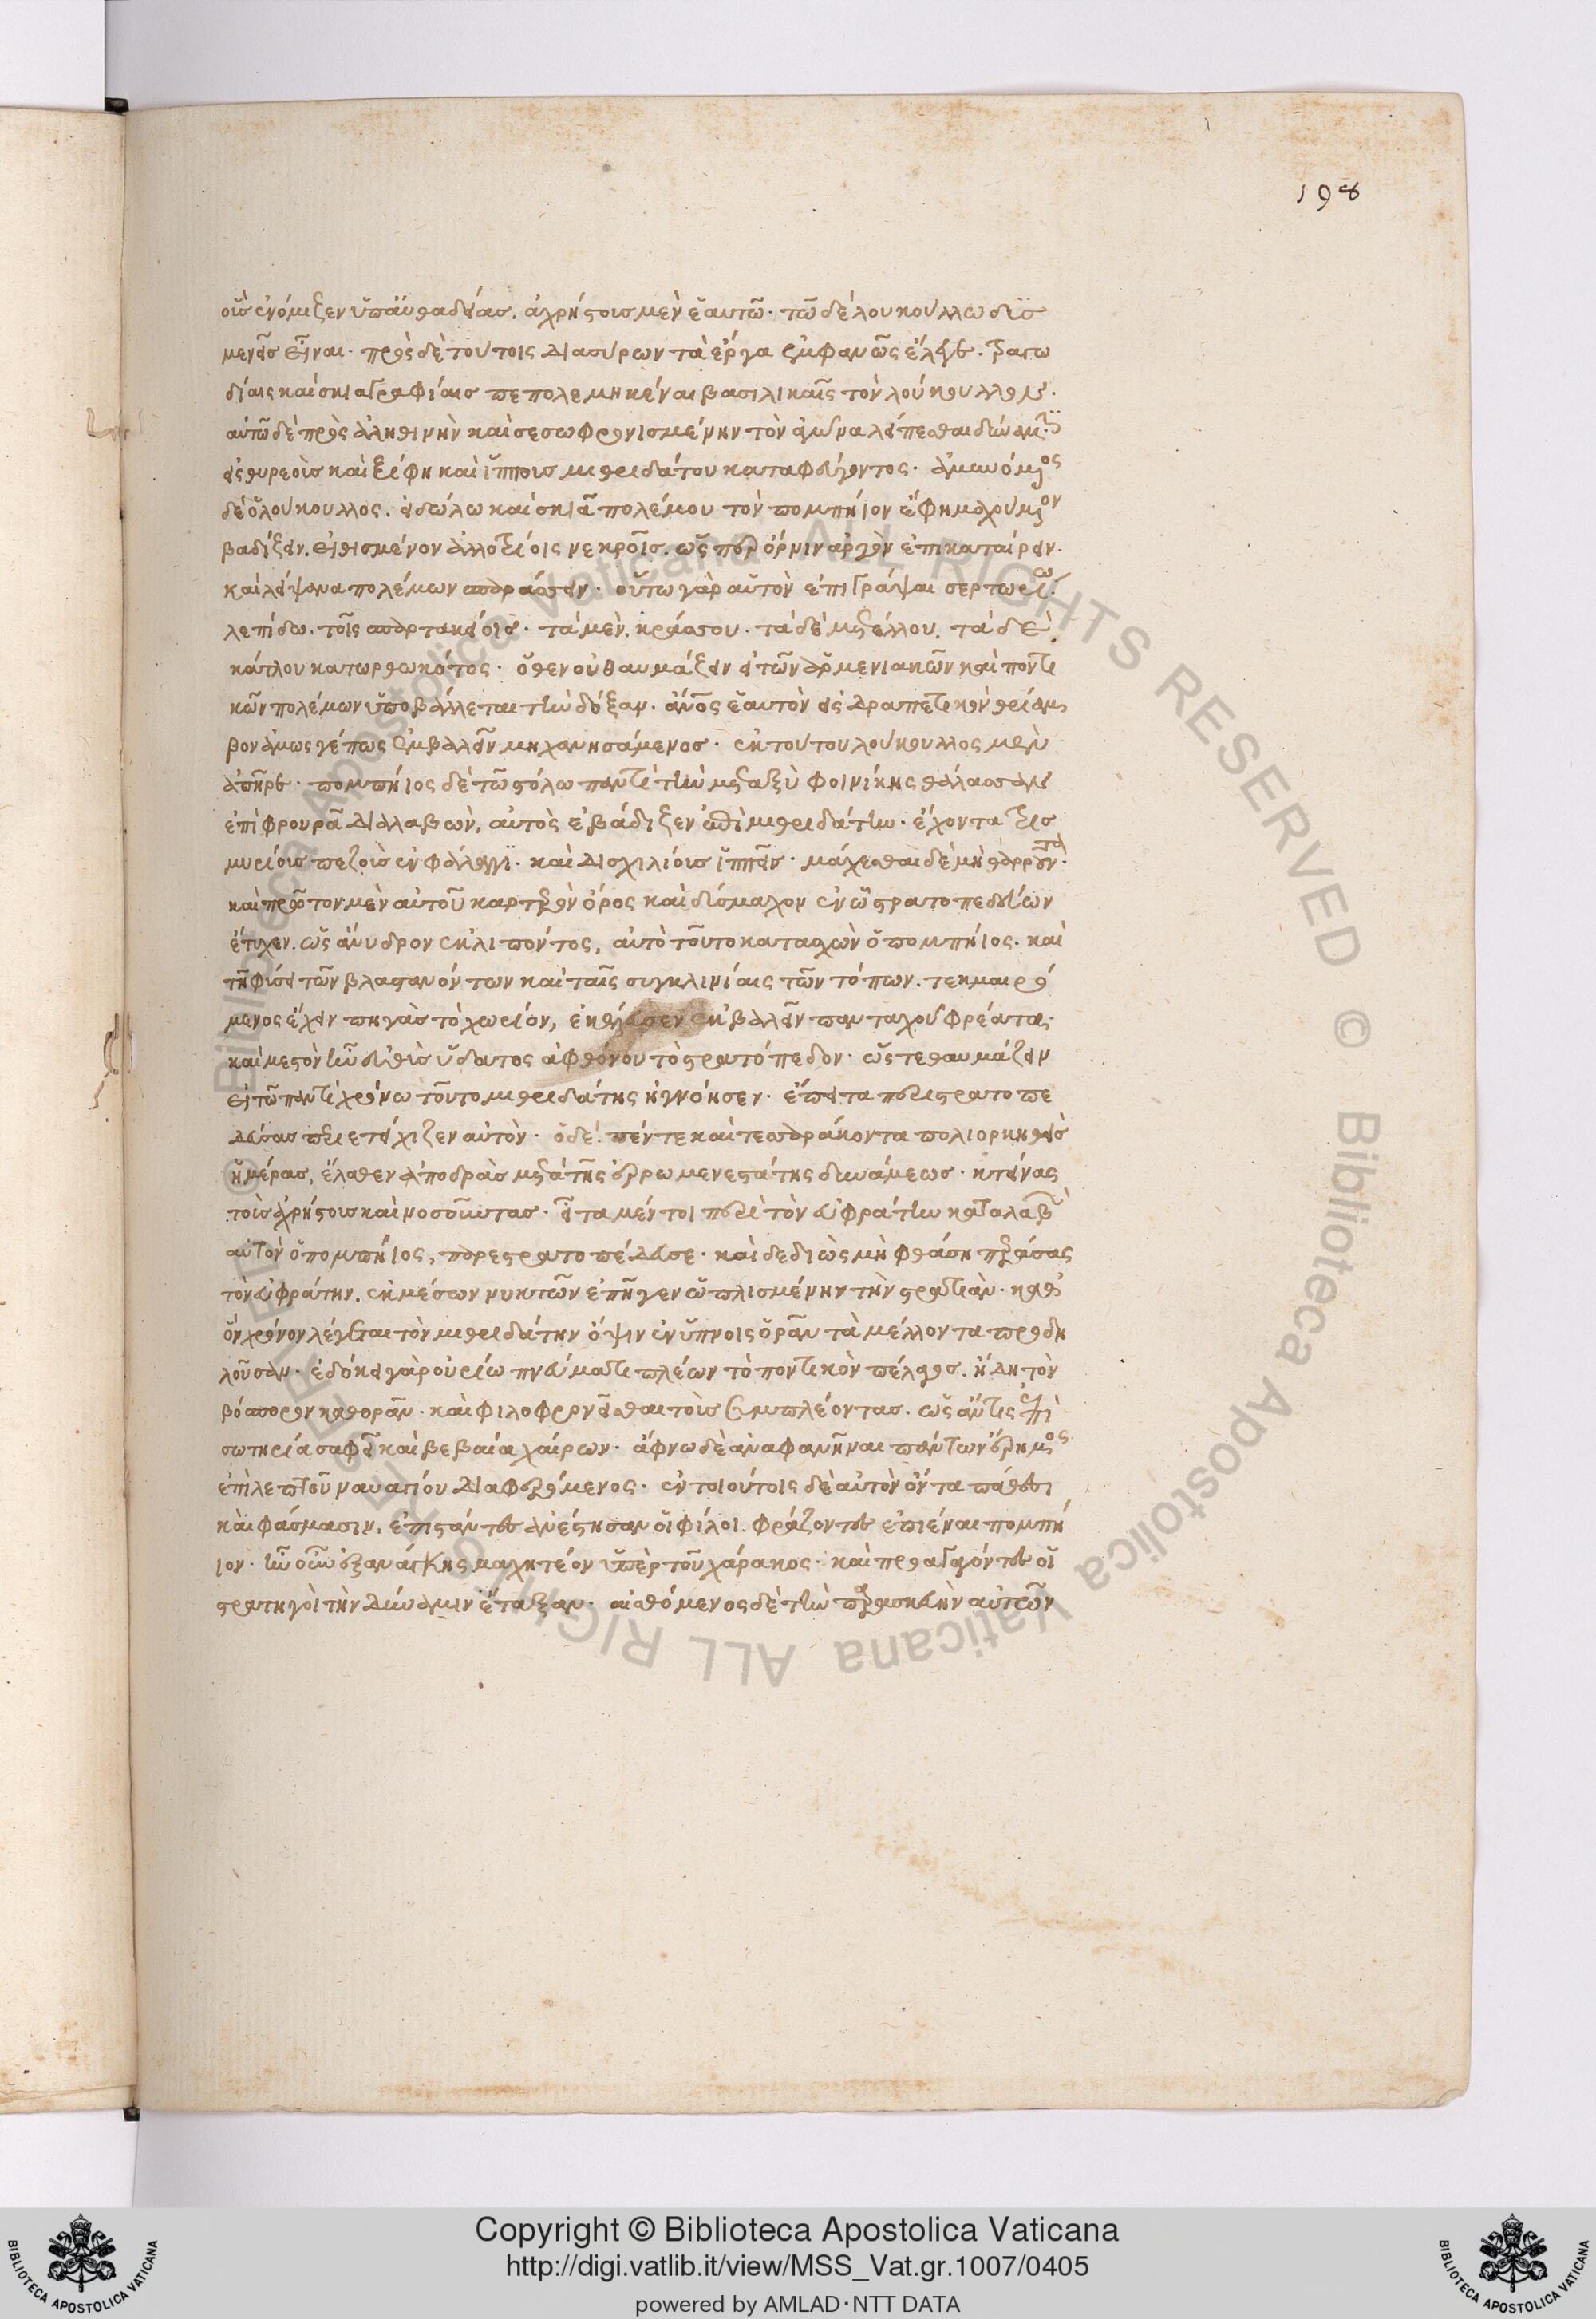 198
οὓς ἐνόμιζεν ὑπ' αὐθαδείας. ἀχρήστους μὲν ἑαυτῶ. τῶ δὲ λουκούλλω δυσ
μενεῖς εἶναι. πρὸς δὲ τούτοις διασύρων τὰ ἔργα ἐμφανῶς ἔλεγε. τραγω
δίαις καὶ σκιαγραφίαις πεπολεμηκέναι βασιλικαῖς τὸν λούκουλλον.
αὐτῶ δὲ πρὸς ἀληθινὴν καὶ σεσωφρονισμένην τὸν ἀγῶνα λείπεσθαι δύναμιν.
εἰς θυρεοὺς καὶ ξίφη καὶ ἵππους μιθριδάτου καταφυγόντος. ἀμυνόμενος
δὲ ὁ λούκουλλος. εἰδώλω καὶ σκιᾶ πολέμου τὸν πομπήϊον ἔφη μαχούμενον
βαδίζειν. εἰθισμένον ἀλλοτρίοις νεκροῖς. ὥσπερ ὄρνιν ἀργὸν ἐπικαταίρειν.
καὶ λείψανα πολέμων σπαράσσειν. οὕτω γὰρ αὐτὸν ἐπιγράψαι σερτωρίω.
λεπίδω. τοῖς σπαρτακείοις. τὰ μὲν. κράσσου. τὰ δὲ μετέλλου. τὰ δὲ
κάτλου κατωρθωκότος. ὅθεν οὐ θαυμάζειν εἰ τῶν ἀρμενιακῶν καὶ ποντι
κῶν πολέμων ὑποβάλλεται τὴν δόξαν. ἄνθρωπος ἑαυτὸν εἰς δραπετικὸν θρίαμ
βον ἁμωσγέπως ἐμβαλεῖν μηχανησάμενος. ἐκ τούτου λούκουλλος μὲν
ἀπῆρε. πομπήϊος δὲ τῶ στόλω παντὶ τὴν μεταξὺ φοινίκης θάλασσαν
ἐπὶ φρουρᾶ διαλαβὼν, αὐτὸς ἐβάδιζεν ἐπὶ μιθριδάτην. ἔχοντα τρισ
μυρίους πεζοὺς ἐν φάλαγγι. καὶ δισχιλίους ἱππεῖς. μάχεσθαι δὲ μὴ θαρροῦντα.
καὶ πρῶτον μὲν αὐτοῦ καρτερὸν ὄρος καὶ δύσμαχον ἐν ὧ στρατοπεδεύων
ἔτυχεν. ὡς ἄνυδρον ἐκλιπόντος, αὐτὸ τοῦτο κατασχὼν ὁ πομπήϊος. καὶ
τῆ φύσει τῶν βλαστανόντων καὶ ταῖς συγκλινίαις τῶν τόπων. τεκμαιρό
μενος ἔχειν πηγὰς τὸ χωρίον, ἐκέλευσεν ἐκβαλεῖν πανταχοῦ φρέατα.
καὶ μεστὸν ἦν εὐθὺς ὕδατος ἀφθόνου τὸ στρατόπεδον. ὥστε θαυμάζειν
εἰ τῶ παντὶ χρόνω τοῦτο μιθριδάτης ἠγνόησεν. ἔπειτα περιστρατοπε
δεύσας περιετείχιζεν αὐτὸν. ὁ δὲ πέντε καὶ τεσσαράκοντα πολιορκηθεὶς
ἡμέρας, ἔλαθεν ἀποδρὰς μετὰ τῆς ἐρρωμενεστάτης δυνάμεως. κτείνας
τοὺς ἀχρήστους καὶ νοσοῦντας. εἶτα μέντοι περὶ τὸν εὐφράτην καταλαβὼν
αὐτὸν ὁ πομπήϊος, παρεστρατοπέδευσε. καὶ δεδιὼς μὴ φθάση περάσας
τὸν εὐφράτην. ἐκ μέσων νυκτῶν ἐπῆγεν ὡπλισμένην τὴν στρατιὰν. καθ'
ὃν χρόνον λέγεται τὸν μιθριδάτην ὄψιν ἐν ὕπνοις ὁρᾶν τὰ μέλλοντα προδη
λοῦσαν. ἐδόκει γὰρ οὐρίω πνεύματι πλέων τὸ ποντικὸν πέλαγος. ἤδη τὸν
βόσπορον καθορᾶν. καὶ φιλοφρονεῖσθαι τοὺς συμπλέοντας. ὡς ἄν τις ἐπὶ
σωτηρία σαφεῖ καὶ βεβαία χαίρων. ἄφνω δὲ ἀναφανῆναι πάντων ἔρημος
ἐπὶ λεπτοῦ ναυαγίου διαφερόμενος. ἐν τοιούτοις δὲ αὐτὸν ὄντα πάθεσι
καὶ φάσμασιν. ἐπιστάντες ἀνέστησαν οἱ φίλοι. φράζοντες ἐπιέναι πομπή
ιον. ἦν οὖν ἐξ ἀνάγκης μαχητέον ὑπὲρ τοῦ χάρακος. καὶ προαγαγόντες οἱ
στρατηγοὶ τὴν δύναμιν ἔταξαν. αἰσθόμενος δὲ τὴν παρασκευὴν αὐτῶν
Copyright © Biblioteca Apostolica Vaticana
http://digi.vatlib.it/view/MSS_Vat.gr.1007/0405
powered by AMLAD·NTT DATA